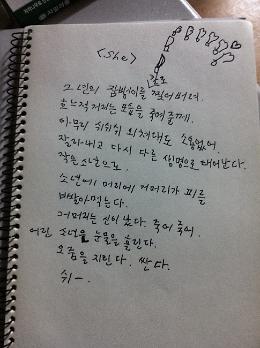 <She>
갈로
그 년의 잠방이를 찢어버려.
흐느적거리는 모습을 죽여줄께.
아무리 쉬쉬쉬 외쳐대도 소용없어.
잘라내고 다시 다른 생명으로 태어난다.
작은 소년으로.
소년에 머리에 거머리가 피를
빨아먹는다.
거머리는 신이 났다. 죽어 죽어.
어린 소년을 눈물을 흘린다.
오줌을 지린다. 싼다.
쉬―.